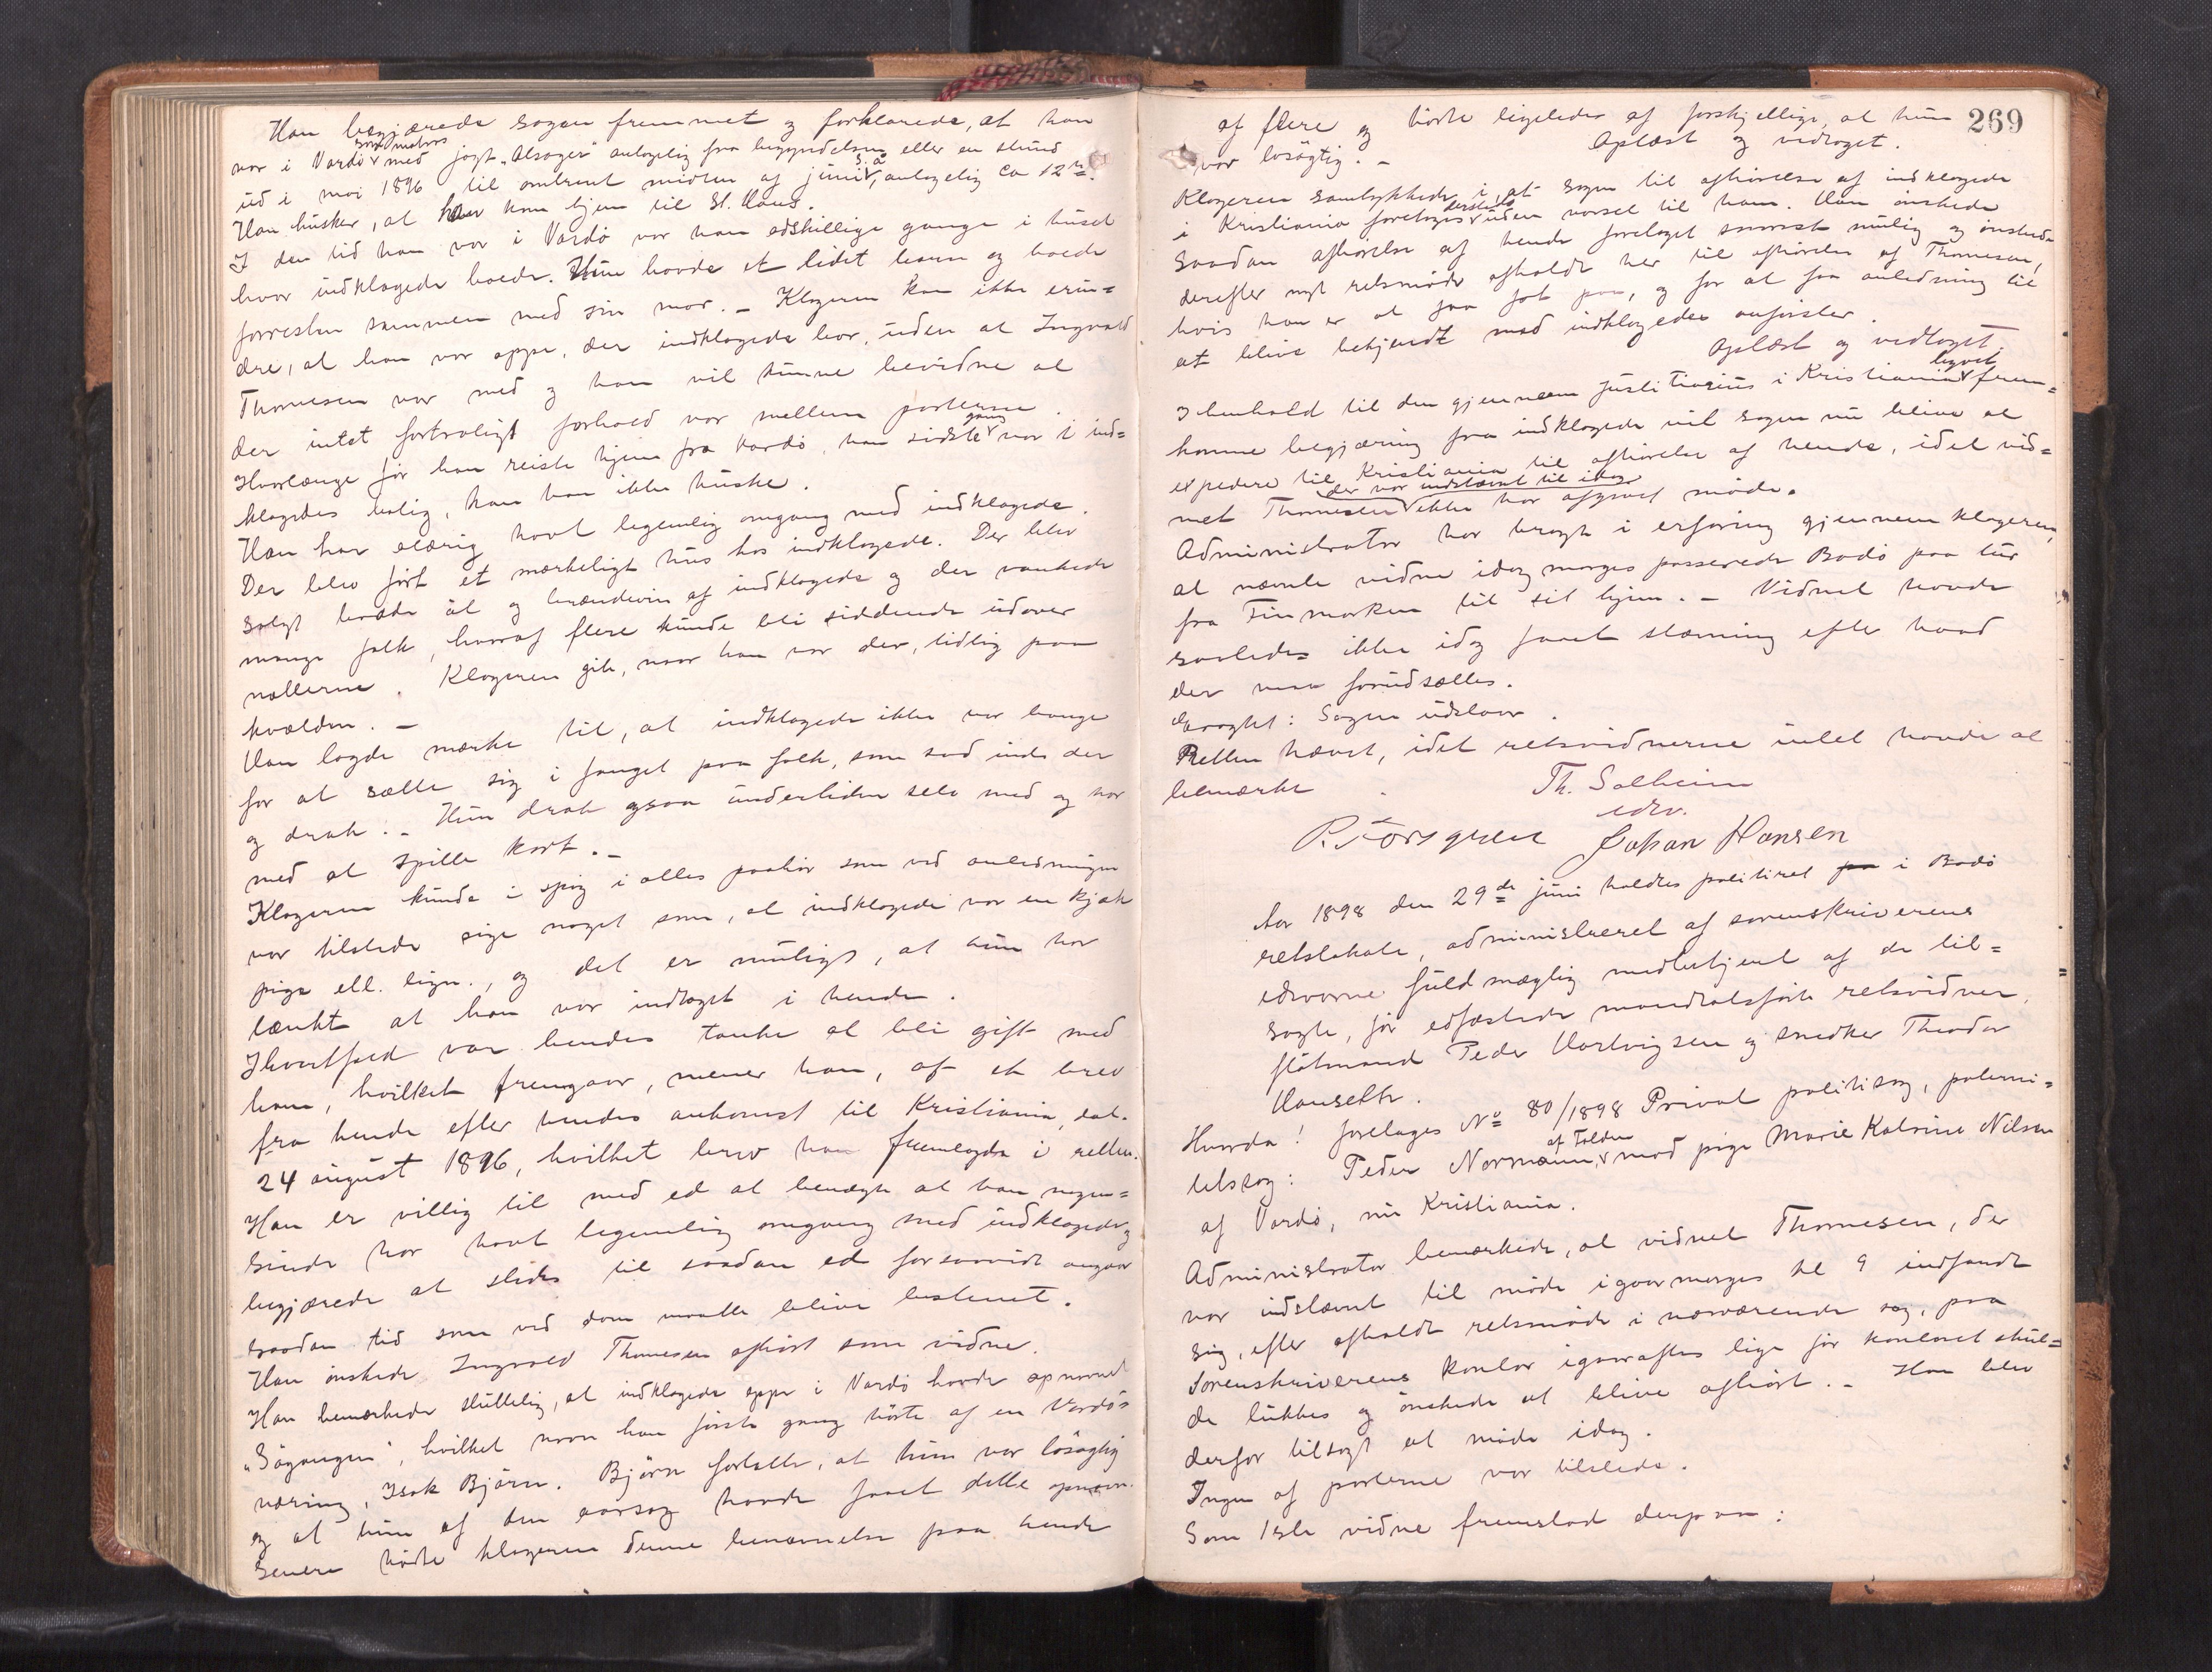 Han begjærede sagen fremmet og forklarede, at han
var i Vardø som matros med jagt "Alsager" antagelig fra begyndelsen eller en stund
ud i mai 1896 til omtrent midten af juni s. å., antagelig ca 12te.
Han husker, at han kom hjem til St. Hans.
I den tid han var i Vardø var han adskillige gange i huset
hvor indklagede boede. Hun havde et lidet barn og boede
forresten sammen med sin mor. – Klageren kan ikke erin=
dre, at han var oppe, der indklagede bor, uden at Ingvald
Thomesen var med og han vil kunne bevidne at
der intet fortroligt forhold var mellem parterne.
Hvorlænge før han reiste hjem fra Vardø, han sidste gang var i ind=
klagedes bolig, kan han ikke huske.
Han har aldrig havt legemlig omgang med indklagede.
Der blev ført et mærkeligt hus hos indklagede. Der blev
solgt baade øl og brændevin af indklagede og der vankede
mange folk, hvoraf flere kunde bli siddende udover
nætterne. Klageren gik, naar han var der, tidlig paa
kvælden. –
Han lagde mærke til, at indklagede ikke var bange
for at sætte sig i fanget paa folk, som sad inde der
og drak. – Hun drak ogsaa undertiden selv med og var
med at spille kort. –
Klageren kunde i spøg i alles paahør som ved anledningen
var tilstede sige noget som, at indklagede var en kjæk
pige ell. lign., og det er muligt, at hun har
tænkt at han var indtaget i hende.
Ihvertfald var hendes tanke at bli gift med
ham, hvilket fremgaar, mener han, af et brev
fra hende efter hendes ankomst til Kristiania, dat.
24 august 1896, hvilket brev han fremlagde i retten.
Han er villig til med ed at benægte at han nogen=
sinde har havt legemlig omgang med indklagede og
begjærede at stedes til saadan ed forsaavidt angaar
saadan tid som ved dom maatte blive bestemt.
Han ønskede Ingvald Thomesen afhørt som vidne.
Han bemærkede sluttelig, at indklagede oppe i Vardø havde opnavnet
"Søgangen", hvilket navn han første gang hørte af en Vardø=
væring, Isak Bjørn. Bjørn fortalte, at hun var løsagtig
og at hun af den aarsag havde faaet dette opnavn.
Senere hørte klageren denne benævnelse paa hende
269
af flere og hørte ligeledes af forskjellige, at hun
var løsagtig. – Oplæst og vedtaget.
Klageren samtykkede i, at sagen til afhørelse af indklagede
i Kristiania foretages dersteds uden varsel til ham. Han ønskede
saadan afhørelse af hende foretaget snarest mulig og ønskede
derefter nyt retsmøde afholdt her til afhørelse af Thomesen,
hvis han er at faa fat paa, og for at faa anledning til
at blive bekjendt med indklagedes anførsler.
Oplæst og vedtaget.
I henhold til den gjennem justitiarius i Kristiania byret frem=
komne begjæring fra indklagede vil sagen nu blive at
expedere til Kristiania til afhørelse af hende, idet vid=
net Thomesen der var indstævnt til idag ikke har afgivet møde.
Administrator har bragt i erfaring gjennem klageren,
at nævnte vidne idag morges passerede Bodø paa tur
fra Finmarken til sit hjem. – Vidnet havde
saaledes ikke idag faaet stævning efter hvad
der maa forudsættes.
Eragtet: Sagen udstaar.
Retten hævet, idet retsvidnerne intet havde at
bemærke.
Th. Solheim
edsv.
P. Forsgreen Johan Hansen
Aar 1898 den 29de juni holdtes politiret paa i Bodø
retslokale, administreret af sorenskriverens
edsvorne fuldmægtig medbetjent af de til=
sagte, før edfæstede mandtalsførte retsvidner,
flåtmand Peder Hartvigsen og snedker Theodor
Hansethr.
Hvorda! foretages No 80/1898 Privat politisag, paterni=
tetssag: Peder Normann af Folden mod pige Marie Katrine Nilsen
af Vardø, nu Kristiania.
Administrator bemærkede, at vidnet Thomesen, der
var indstævnt til møde igaarmorges kl 9 indfandt
sig, efter afholdt retsmøde i nærværende sag, paa
Sorenskriverens kontor igaaraftes lige før kontoret skul=
de lukkes og ønskede at blive afhørt. – Han blev
derfor tilsagt at møde idag.
Ingen af parterne var tilstede.
Som 1ste vidne fremstod derpaa: